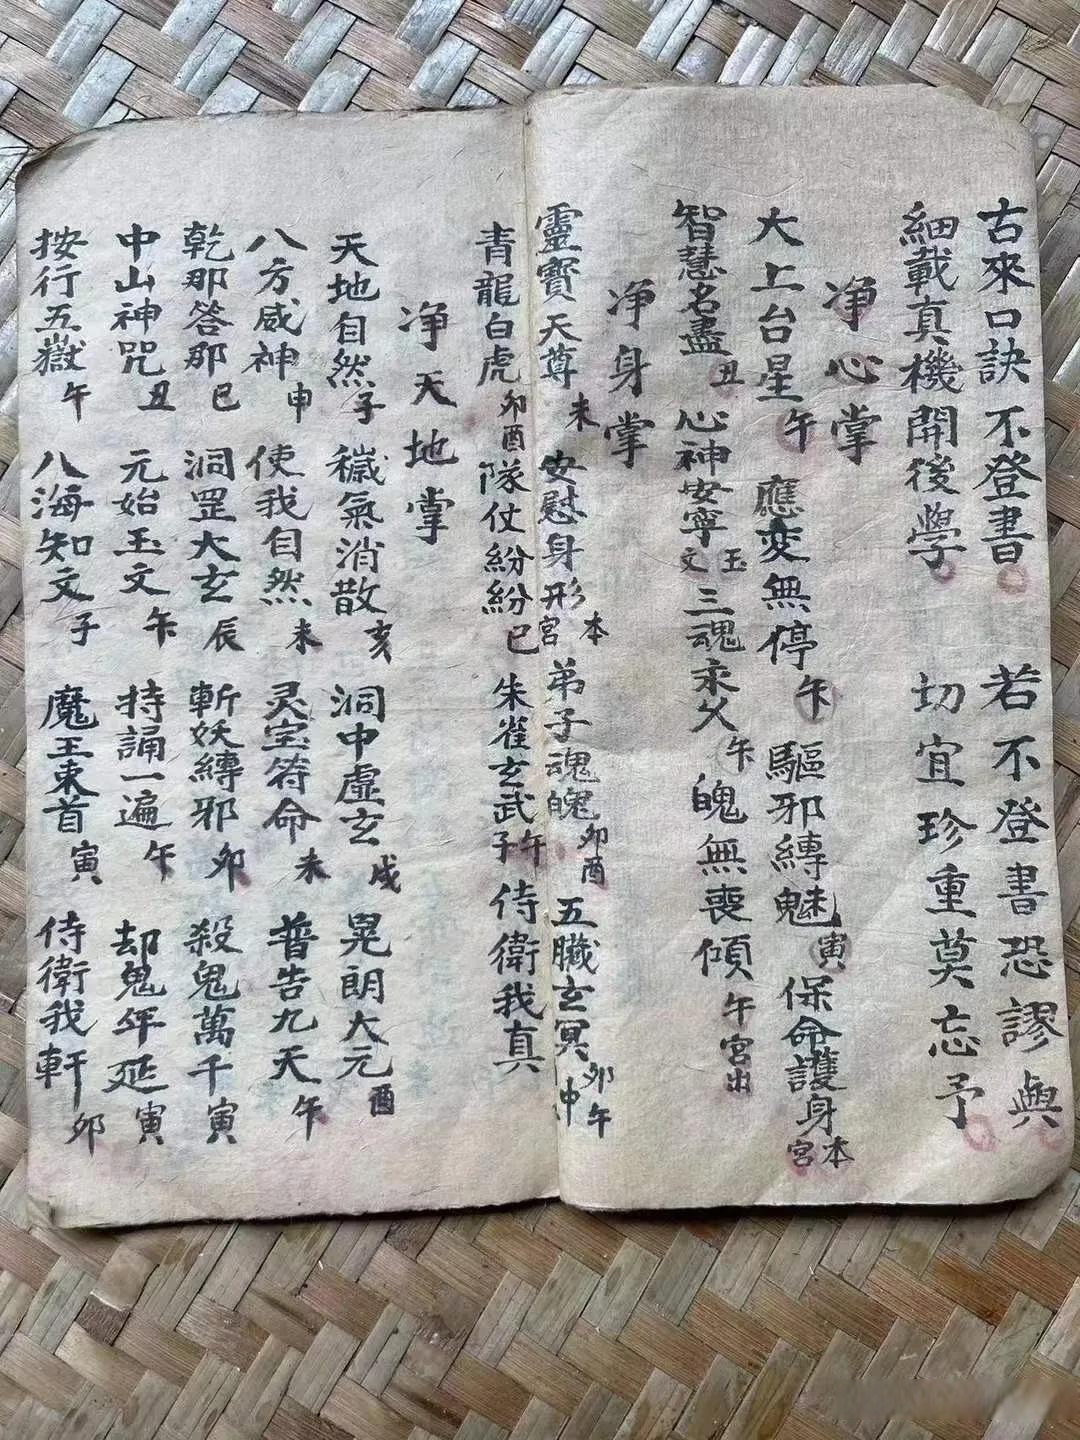 古來口訣不登書 若不登書恐謬與
細載真機開後學 切宜珍重莫忘予
净心掌
大上台星午 應变無停午 驅邪縛魅寅 保命護身本宮
智慧名盡丑 心神安寧玉文 三魂永久午 魄無喪傾午宮出
净身掌
靈寶天尊未 安慰身形本宮 弟子魂魄卯酉 五臟玄冥卯午冲
青龍白虎卯酉 隊仗紛紛巳 朱雀玄武午子 侍衛我真
净天地掌
天地自然子 穢氣消散亥 洞中虛玄戍 晃朗大元酉
八方威神申 使我自然未 灵宝符命未 普告九天午
乾那答那巳 洞罡大玄辰 斬妖縛邪卯 殺鬼萬千寅
中山神咒丑 元始玉文午 持誦一遍午 却鬼年延寅
按行五嶽午 八海知文子 魔王束首寅 侍衛我軒卯